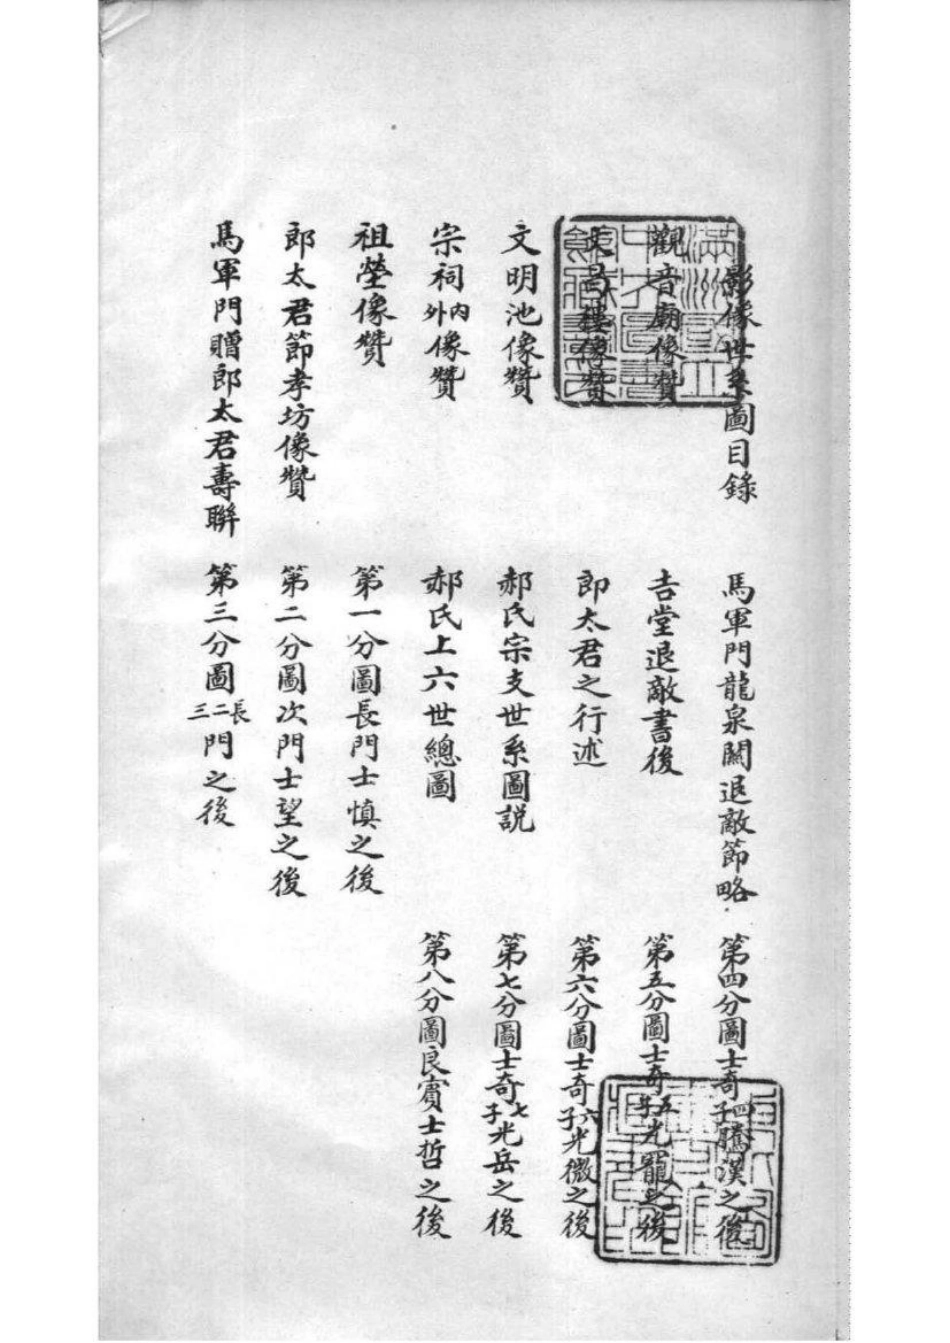 影像世系圖目錄
觀音廟像贊
文昌樓像贊
文明池像贊
宗祠內外像贊
祖塋像贊
郎太君節孝坊像贊
馬軍門贈郎太君壽聯
馬軍門龍泉關退敵節略
吉堂退敵書後
郎太君之行述
郝氏宗支世系圖説
郝氏上六世總圖
第一分圖長門士慎之後
第二分圖次門士望之後
第三分圖長二三門之後
第四分圖士奇四子騰漢之後
第五分圖士奇五子光寵之後
第六分圖士奇六子光微之後
第七分圖士奇七子光岳之後
第八分圖良賓士哲之後